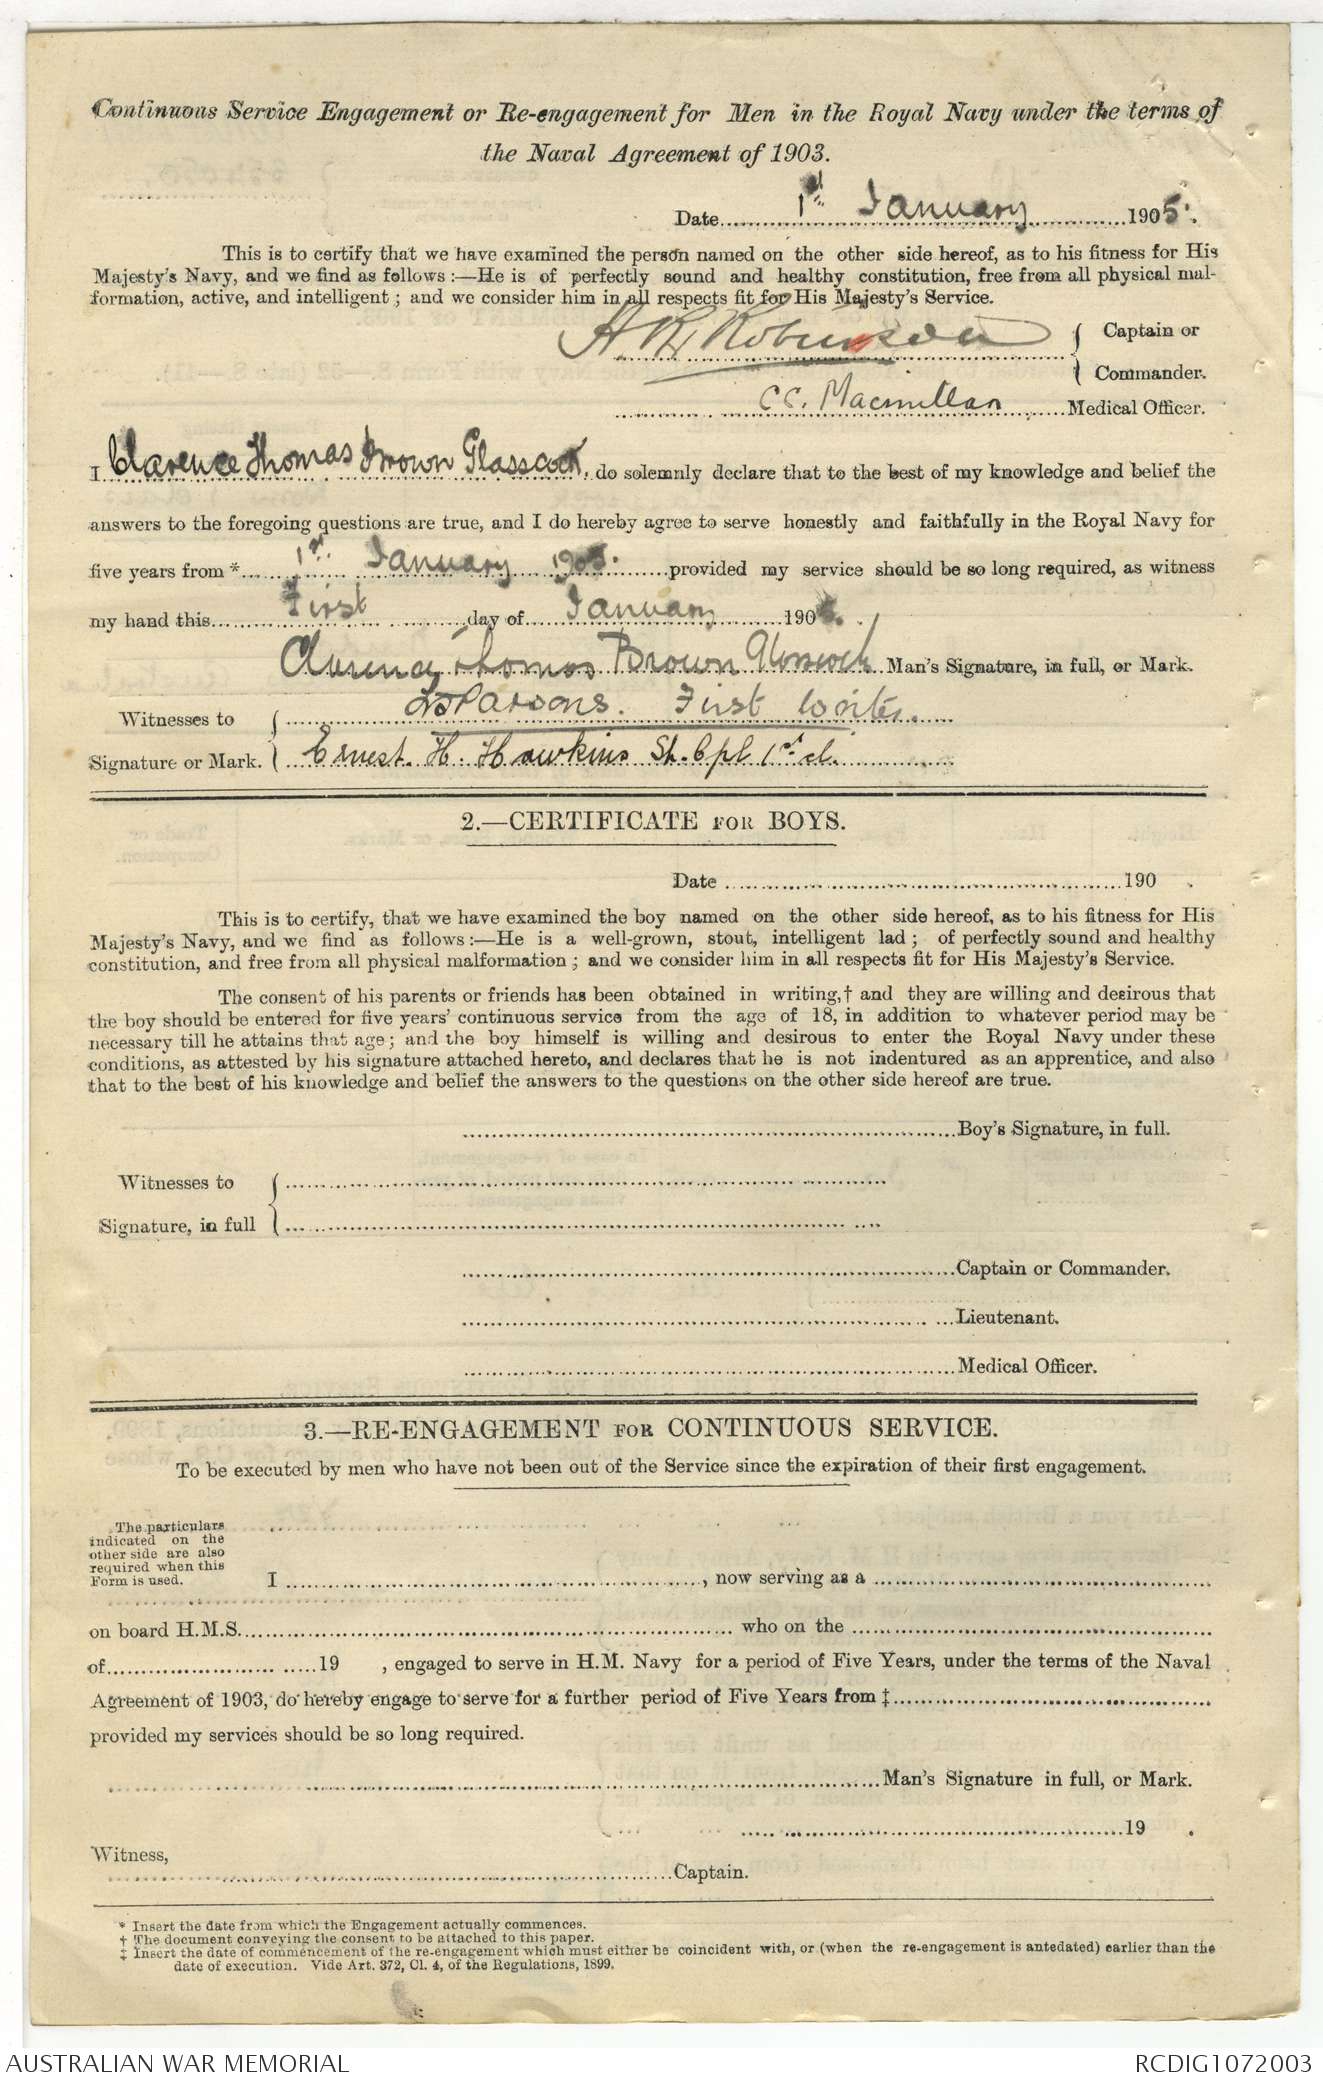 Continuous Service Engagement or Re-engagement for Men in the Royal Navy under the terms of
the Naval Agreement of 1903.
Date 1st January 1905.
This is to certify that we have examined the person named on the other side hereof, as to his fitness for His
Majesty's Navy, and we find as follows :—He is of perfectly sound and healthy constitution, free from all physical mal-
formation, active, and intelligent ; and we consider him in all respects fit for His Majesty's Service.
Robinson Captain or
Commander.
C.C. Macmillan Medical Officer.
I Clarence Thomas Brown Glasscock, do solemnly declare that to the best of my knowledge and belief the
answers to the foregoing questions are true, and I do hereby agree to serve honestly and faithfully in the Royal Navy for
five years from * 1st January 1905. provided my service should be so long required, as witness
my hand this First day of January 1905.
Clarence Thomas Brown Glasscock Man's Signature, in full, or Mark.
Witnesses to Parsons. First Writer.
Signature or Mark. Ernest. H. Hawkins Sh. Cpl 1st cl.
2.—CERTIFICATE FOR BOYS.
Date 190 .
This is to certify, that we have examined the boy named on the other side hereof, as to his fitness for His
Majesty's Navy, and we find as follows :—He is a well-grown, stout, intelligent lad ; of perfectly sound and healthy
constitution, and free from all physical malformation ; and we consider him in all respects fit for His Majesty's Service.
The consent of his parents or friends has been obtained in writing,† and they are willing and desirous that
the boy should be entered for five years' continuous service from the age of 18, in addition to whatever period may be
necessary till he attains that age ; and the boy himself is willing and desirous to enter the Royal Navy under these
conditions, as attested by his signature attached hereto, and declares that he is not indentured as an apprentice, and also
that to the best of his knowledge and belief the answers to the questions on the other side hereof are true.
Boy's Signature, in full.
Witnesses to
Signature, in full
Captain or Commander.
Lieutenant.
Medical Officer.
3.—RE-ENGAGEMENT FOR CONTINUOUS SERVICE.
To be executed by men who have not been out of the Service since the expiration of their first engagement.
The particulars
indicated on the
other side are also
required when this
Form is used.
I , now serving as a
on board H.M.S. who on the
of 19 , engaged to serve in H.M. Navy for a period of Five Years, under the terms of the Naval
Agreement of 1903, do hereby engage to serve for a further period of Five Years from ‡
provided my services should be so long required.
Man's Signature in full, or Mark.
19 .
Witness,
Captain.
* Insert the date from which the Engagement actually commences.
† The document conveying the consent to be attached to this paper.
‡ Insert the date of commencement of the re-engagement which must either be coincident with, or (when the re-engagement is antedated) earlier than the
date of execution. Vide Art. 372, Cl. 4, of the Regulations, 1899.
AUSTRALIAN WAR MEMORIAL
RCDIG1072003